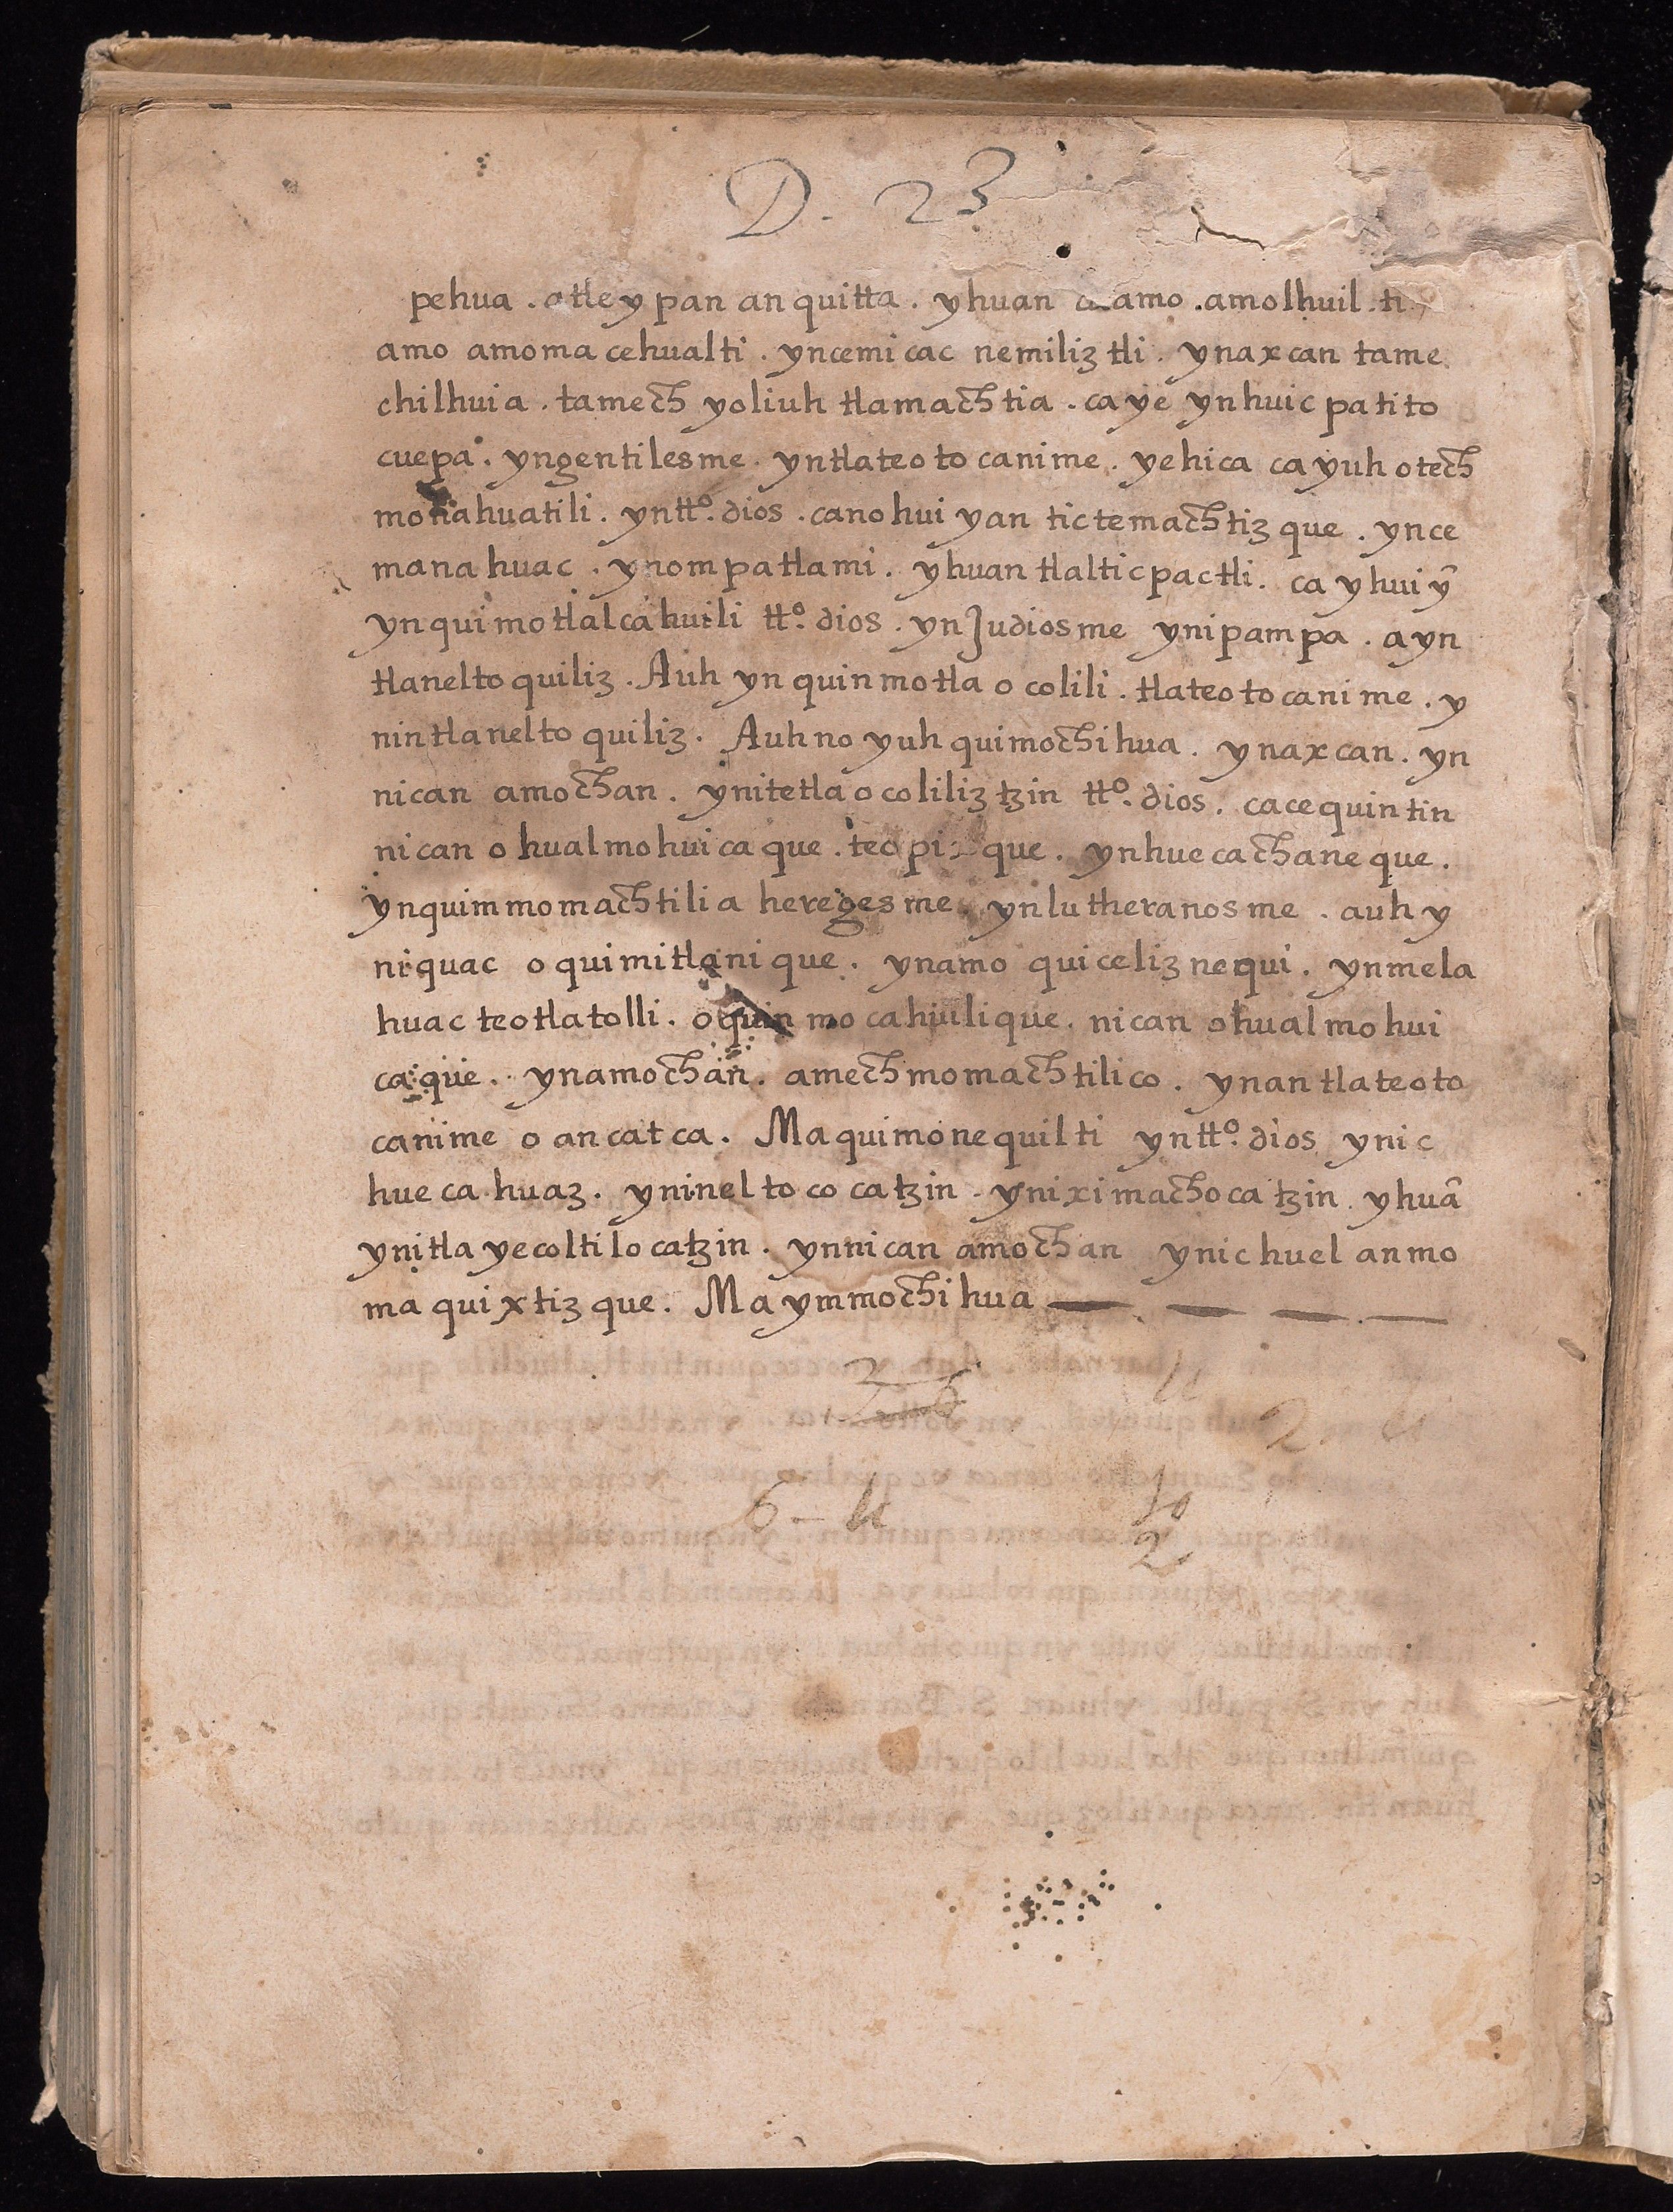 D. 23
pehua . atle ypan an quitta . yhuan amo . amolhuil ti
amo amoma cehualti . yncemi cac nemiliztli . ynaxcan tame
chilhuia . tamech yoliuh tlamachtia . ca ye ynhuic patito
cuepa . yngentilesme . yntlateo to canime . yehica ca yuh otech
monahuatili . yntto. dios . canohui yan tictemachtiz que . ynce
manahuac . ynompatlami . yhuan tlalticpactli . ca yhui ỹ
ynquimotlalcahuili tto. dios . ynJudiosme ynipampa . ayn
tlanelto quiliz . Auh yn quinmotla o colili . tlateo to canime . y
nintlanelto quiliz . Auh no yuh quimochihua . ynaxcan . yn
nican amochan . ynitetlaocoliliztzin tto. dios . cacequintin
nican o hualmohuicaque . teopixque . ynhuecachaneque .
ynquimmomachtilia heregesme . ynlutheranosme . auh y
niquac o quimitlanique . ynamo quiceliz nequi . ynmela
huac teotlatolli . oquin mocahuilique . nican ohualmohui
caque . ynamochan . amechmomachtilico . ynantlateoto
canime o ancatca . Maquimonequilti yntto. dios ynic
huecahuaz . yninelto cocatzin . yniximachocatzin . yhuã
ynitlayecoltilocatzin . ynnican amochan ynichuel anmo
maquixtizque . Ma ymmochihua